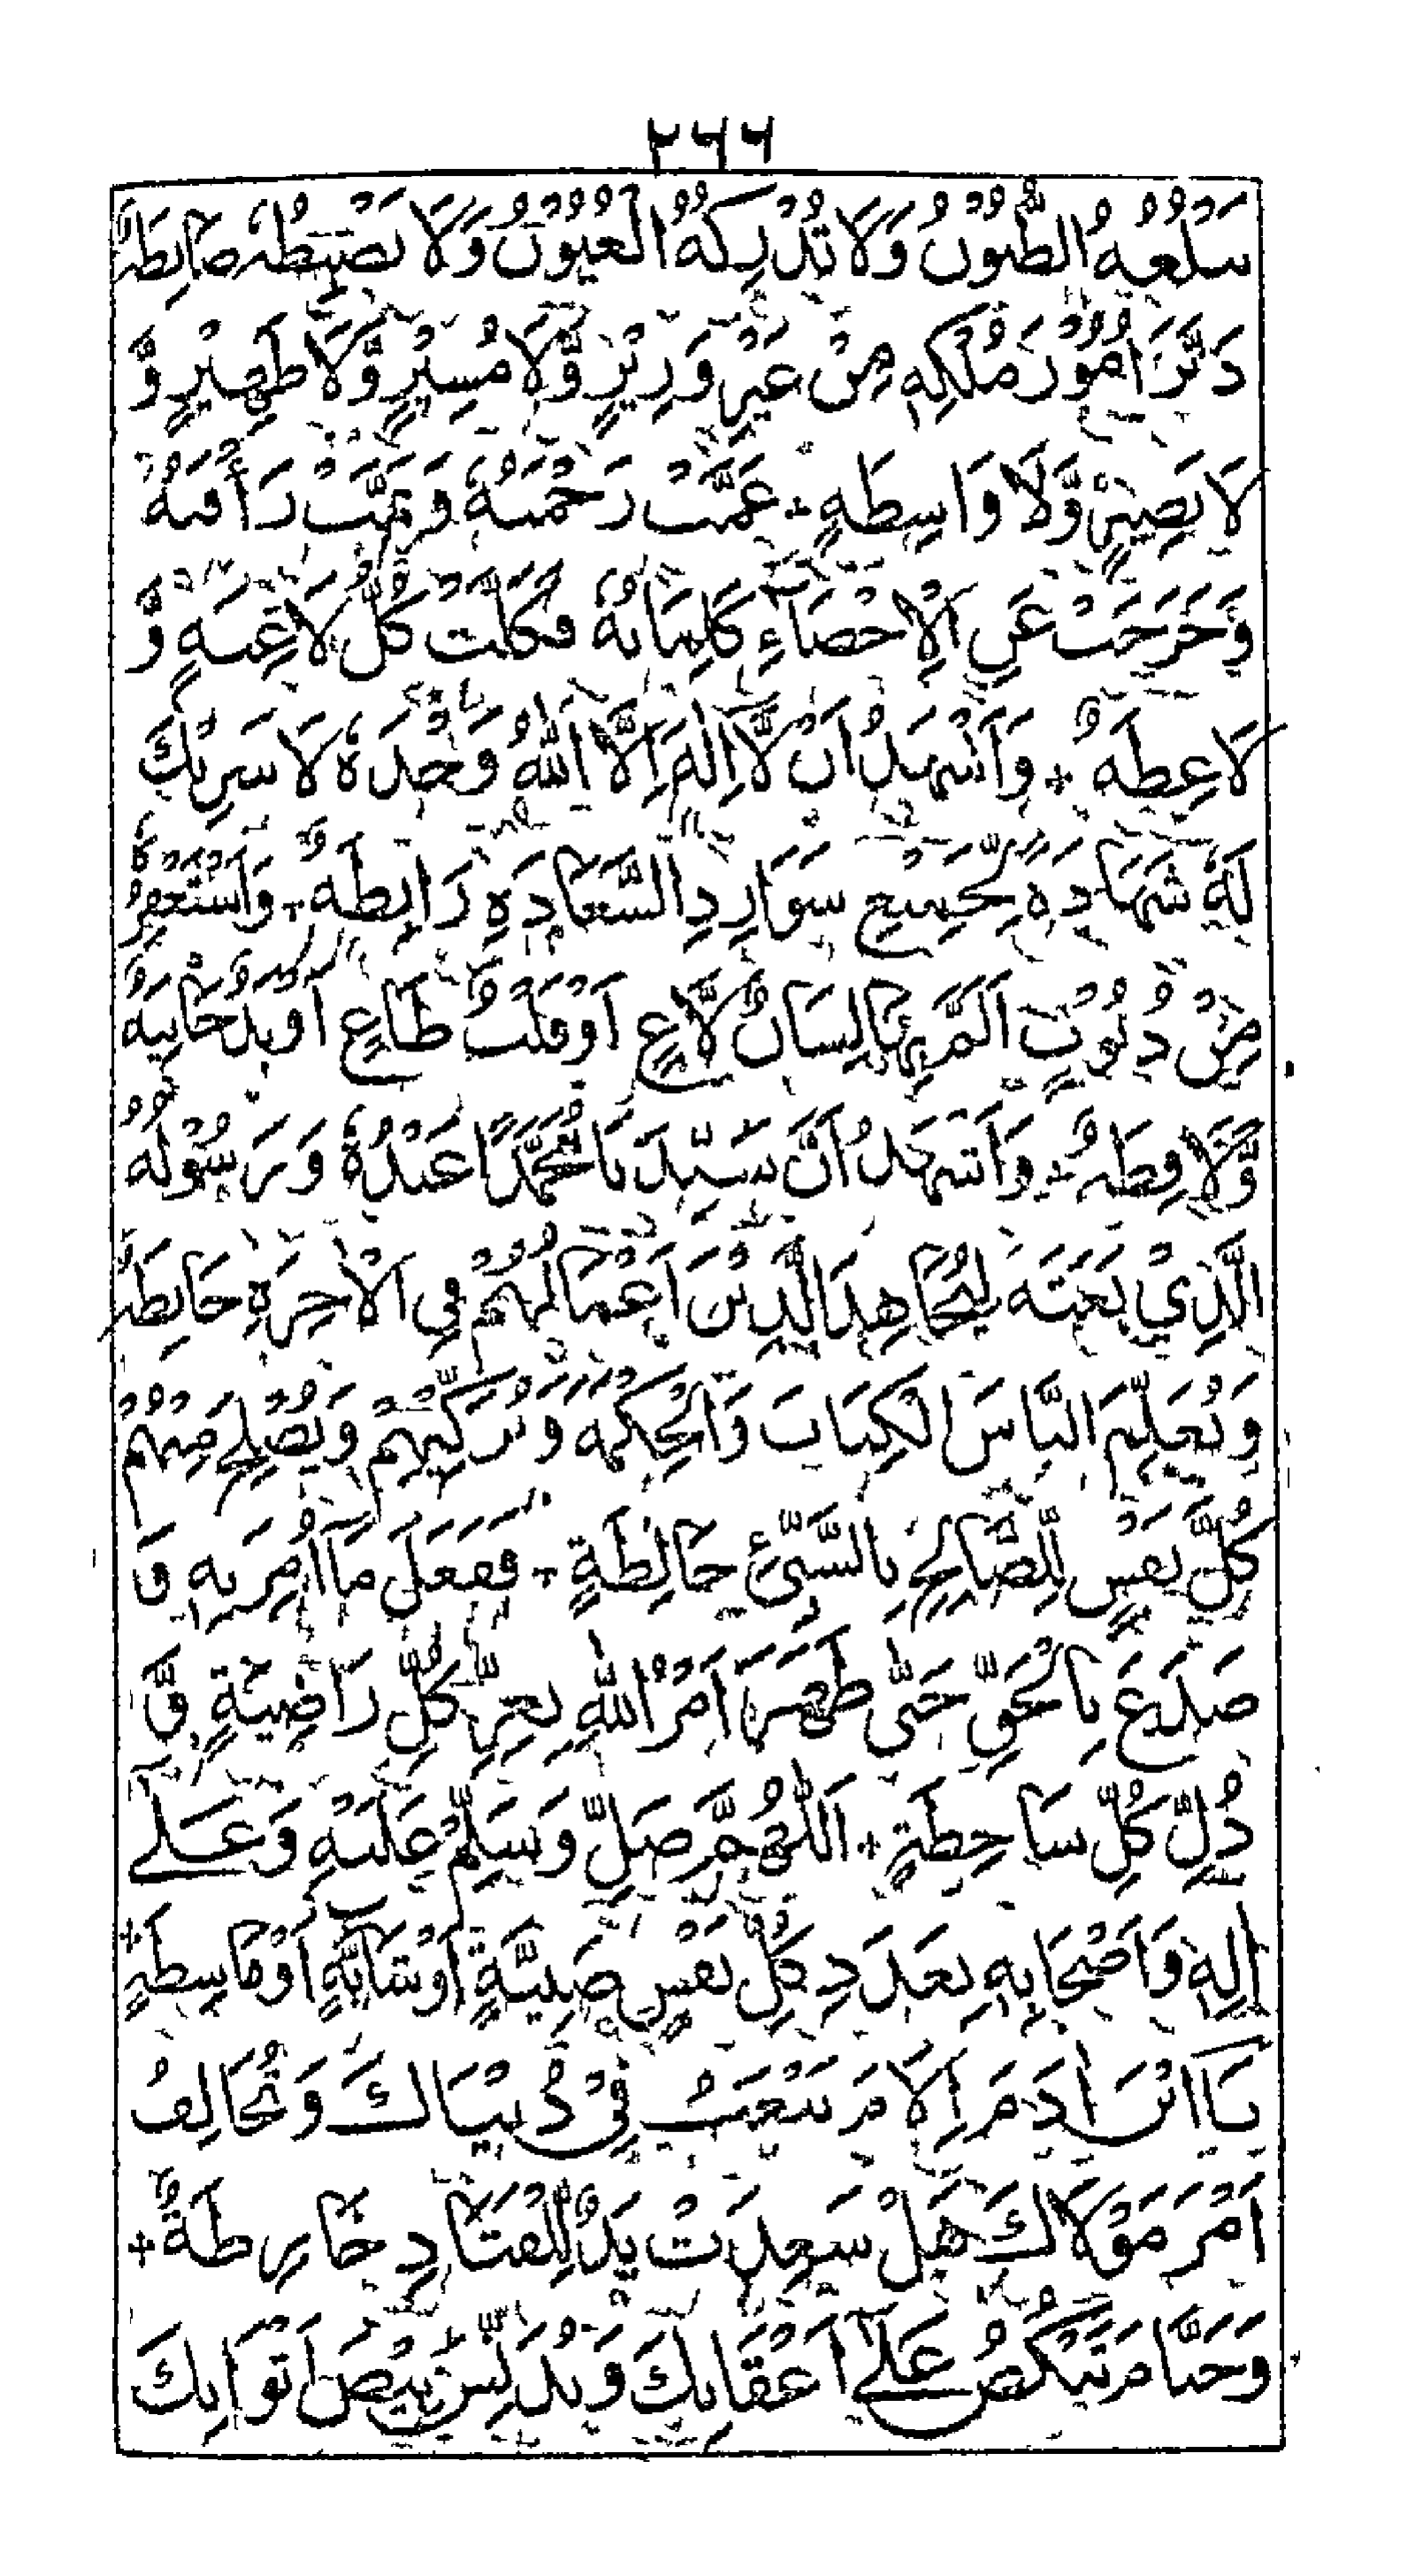 ٢٦٦
تَبْلُغُهُ الظُّنُوْنُ وَلَا تُدْرِكُهُ الْعُيُوْنُ وَلَا تَضْبِطُهٗ ضَابِطَةٌ
دَبَّرَ اُمُوْرَ مُلْكِهٖ مِنْ غَيْرِ وَزِيْرٍ وَّلَا مُشِيْرٍ وَّلَا ظَهِيْرٍ وَّ
لَا نَصِيْرٍ وَّلَا وَاسِطَةٍ + عَمَّتْ رَحْمَتُهٗ وَتَمَّتْ رَأْفَتُهٗ
وَخَرَجَتْ عَنِ الْاِحْصَاءِ كَلِمَاتُهٗ فَكَلَّتْ كُلُّ لَاغِيَةٍ وَّ
لَاغِطَةٍ + وَاَشْهَدُ اَنْ لَّا اِلٰهَ اِلَّا اللّٰهُ وَحْدَهٗ لَا شَرِيْكَ
لَهٗ شَهَادَةً لِّجَمِيْعِ مَوَارِدِ السَّعَادَةِ رَابِطَةً + وَاَسْتَغْفِرُهٗ
مِنْ ذُنُوْبٍ اَلَمَّ بِهَا لِسَانٌ لَّاغٍ اَوْ قَلْبٌ طَاغٍ اَوْ يَدٌ جَانِيَةٌ
وَّلَافِظَةٌ + وَاَشْهَدُ اَنَّ سَيِّدَنَا مُحَمَّدًا عَبْدُهٗ وَرَسُوْلُهُ
الَّذِيْ بَعَثَهٗ لِيُجَاهِدَ الَّذِيْنَ اَعْمَالُهُمْ فِي الْاٰخِرَةِ حَابِطَةٌ
وَيُعَلِّمَ النَّاسَ الْكِتَابَ وَالْحِكْمَةَ وَيُزَكِّيْهِمْ وَيُصْلِحَ مِنْهُمْ
كُلَّ نَفْسٍ لِلصَّالِحِ بِالسَّيِّئِ خَالِطَةٍ + فَفَعَلَ مَا اُمِرَ بِهٖ وَ
صَدَعَ بِالْحَقِّ حَتّٰى ظَهَرَ اَمْرُ اللّٰهِ بِعِزِّ كُلِّ رَاضِيَةٍ وَّ
ذُلِّ كُلِّ سَاخِطَةٍ + اَللّٰهُمَّ صَلِّ وَسَلِّمْ عَلَيْهِ وَعَلٰى
اٰلِهٖ وَاَصْحَابِهٖ بِعَدَدِ كُلِّ نَفْسٍ صَبِيَّةٍ اَوْ شَابَّةٍ اَوْ قَاسِطَةٍ +
يَا ابْنَ اٰدَمَ اِلَامَ تَتْعَبُ فِيْ دُنْيَاكَ وَتُخَالِفُ
اَمْرَ مَوْلَاكَ هَلْ سَعِدَتْ يَدٌ لِلْقَتَادِ خَارِطَةٌ +
وَحَتَّامَ تَنْكُصُ عَلٰى اَعْقَابِكَ وَتُدَنِّسُ بِيْضَ اَثْوَابِكَ